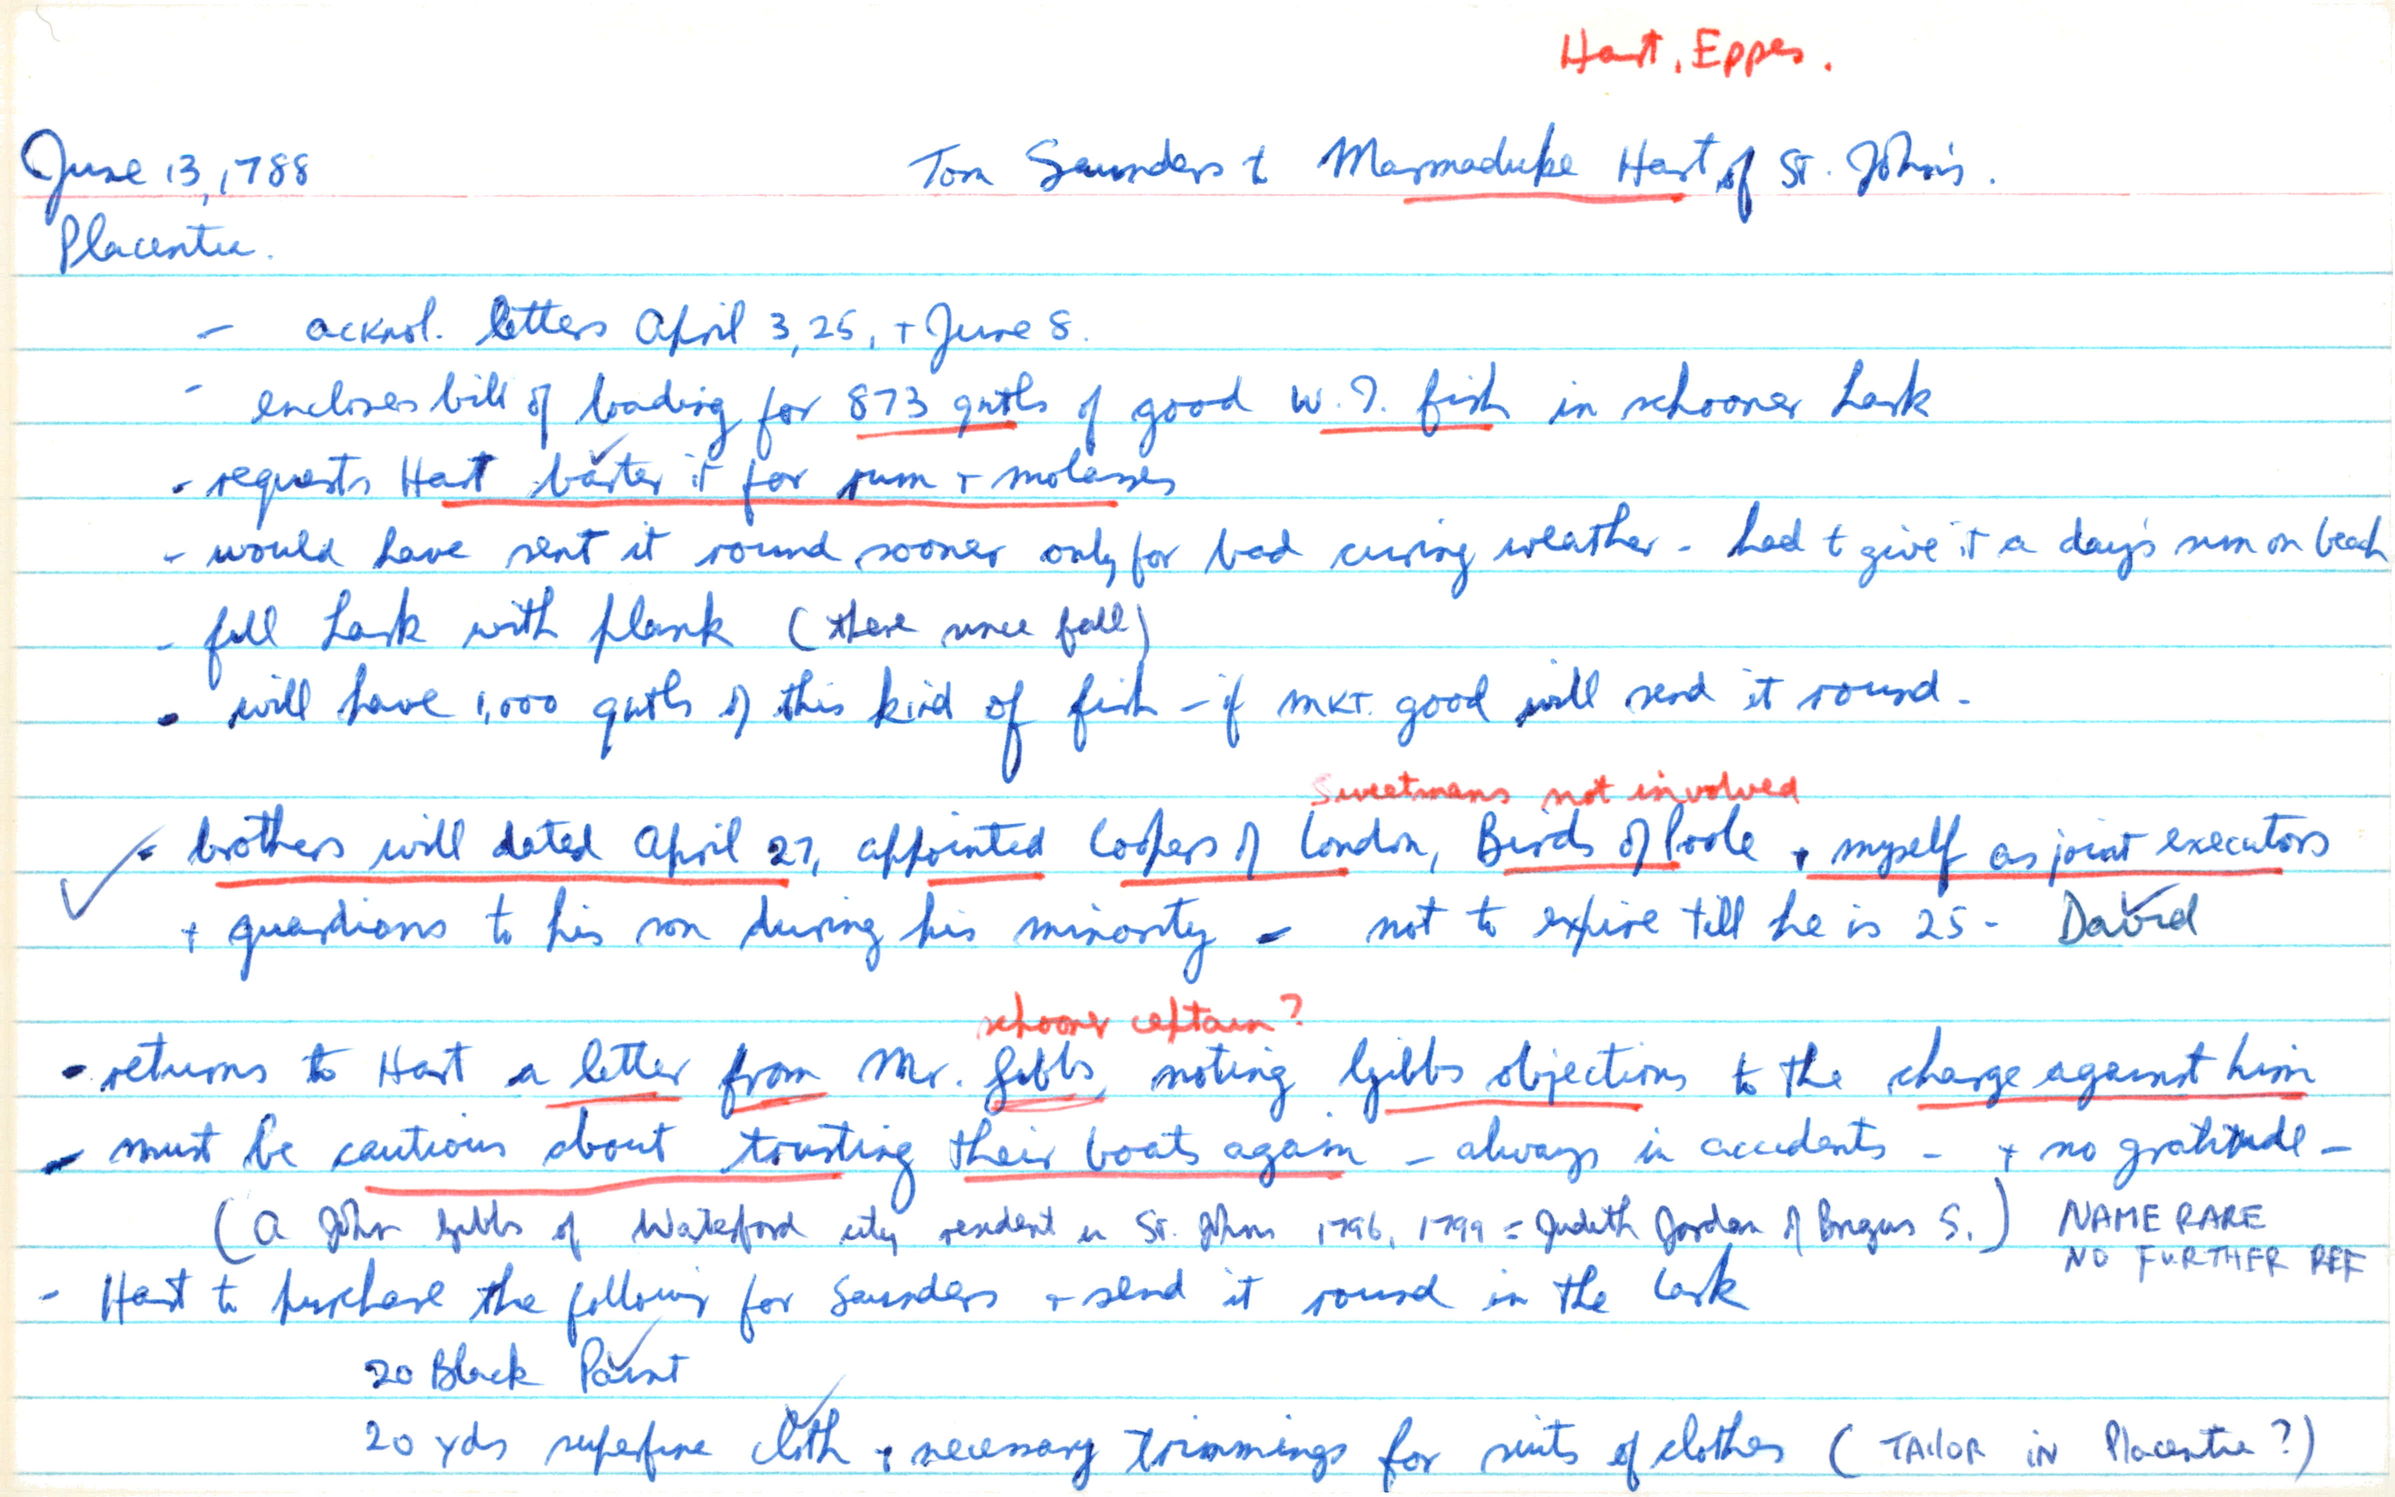 Hart, Eppes.
June 13, 1788 Tom Saunders t Marmaduke Hart of St. John's.
Placentia.
- acknol. letters April 3, 25, + June 8.
- encloses bill of loading for 873 qntls of good W. I. fish in schooner Lark
- requests Hart barter it for rum + molasses
- would have sent it round sooner only for bad curing weather - had t give it a day's sun on beach
- fill Lark with plank (there since fall)
- will have 1,000 qntls of this kind of fish - if mkt. good will send it round -
Sweetmans not involved
- brothers will dated April 27, appointed Coopers of London, Birds of Poole + myself as joint executors
+ guardians to his son during his minority - not to expire till he is 25 - David
schooner captain?
- returns to Hart a letter from Mr. Gibbs, noting Gibbs objections to the charge against him
- must be cautious about trusting their boats again - always in accidents - + no gratitude -
(A John Gibbs of Waterford city resident in St. Johns 1796, 1799 = Judith Jordan of Brigus S.) NAME RARE
NO FURTHER REF
- Hart to purchase the following for Saunders + send it round in the Lark
20 Black Paint
20 yds superfine cloth + necessary trimmings for suits of clothes (TAILOR IN Placentia?)